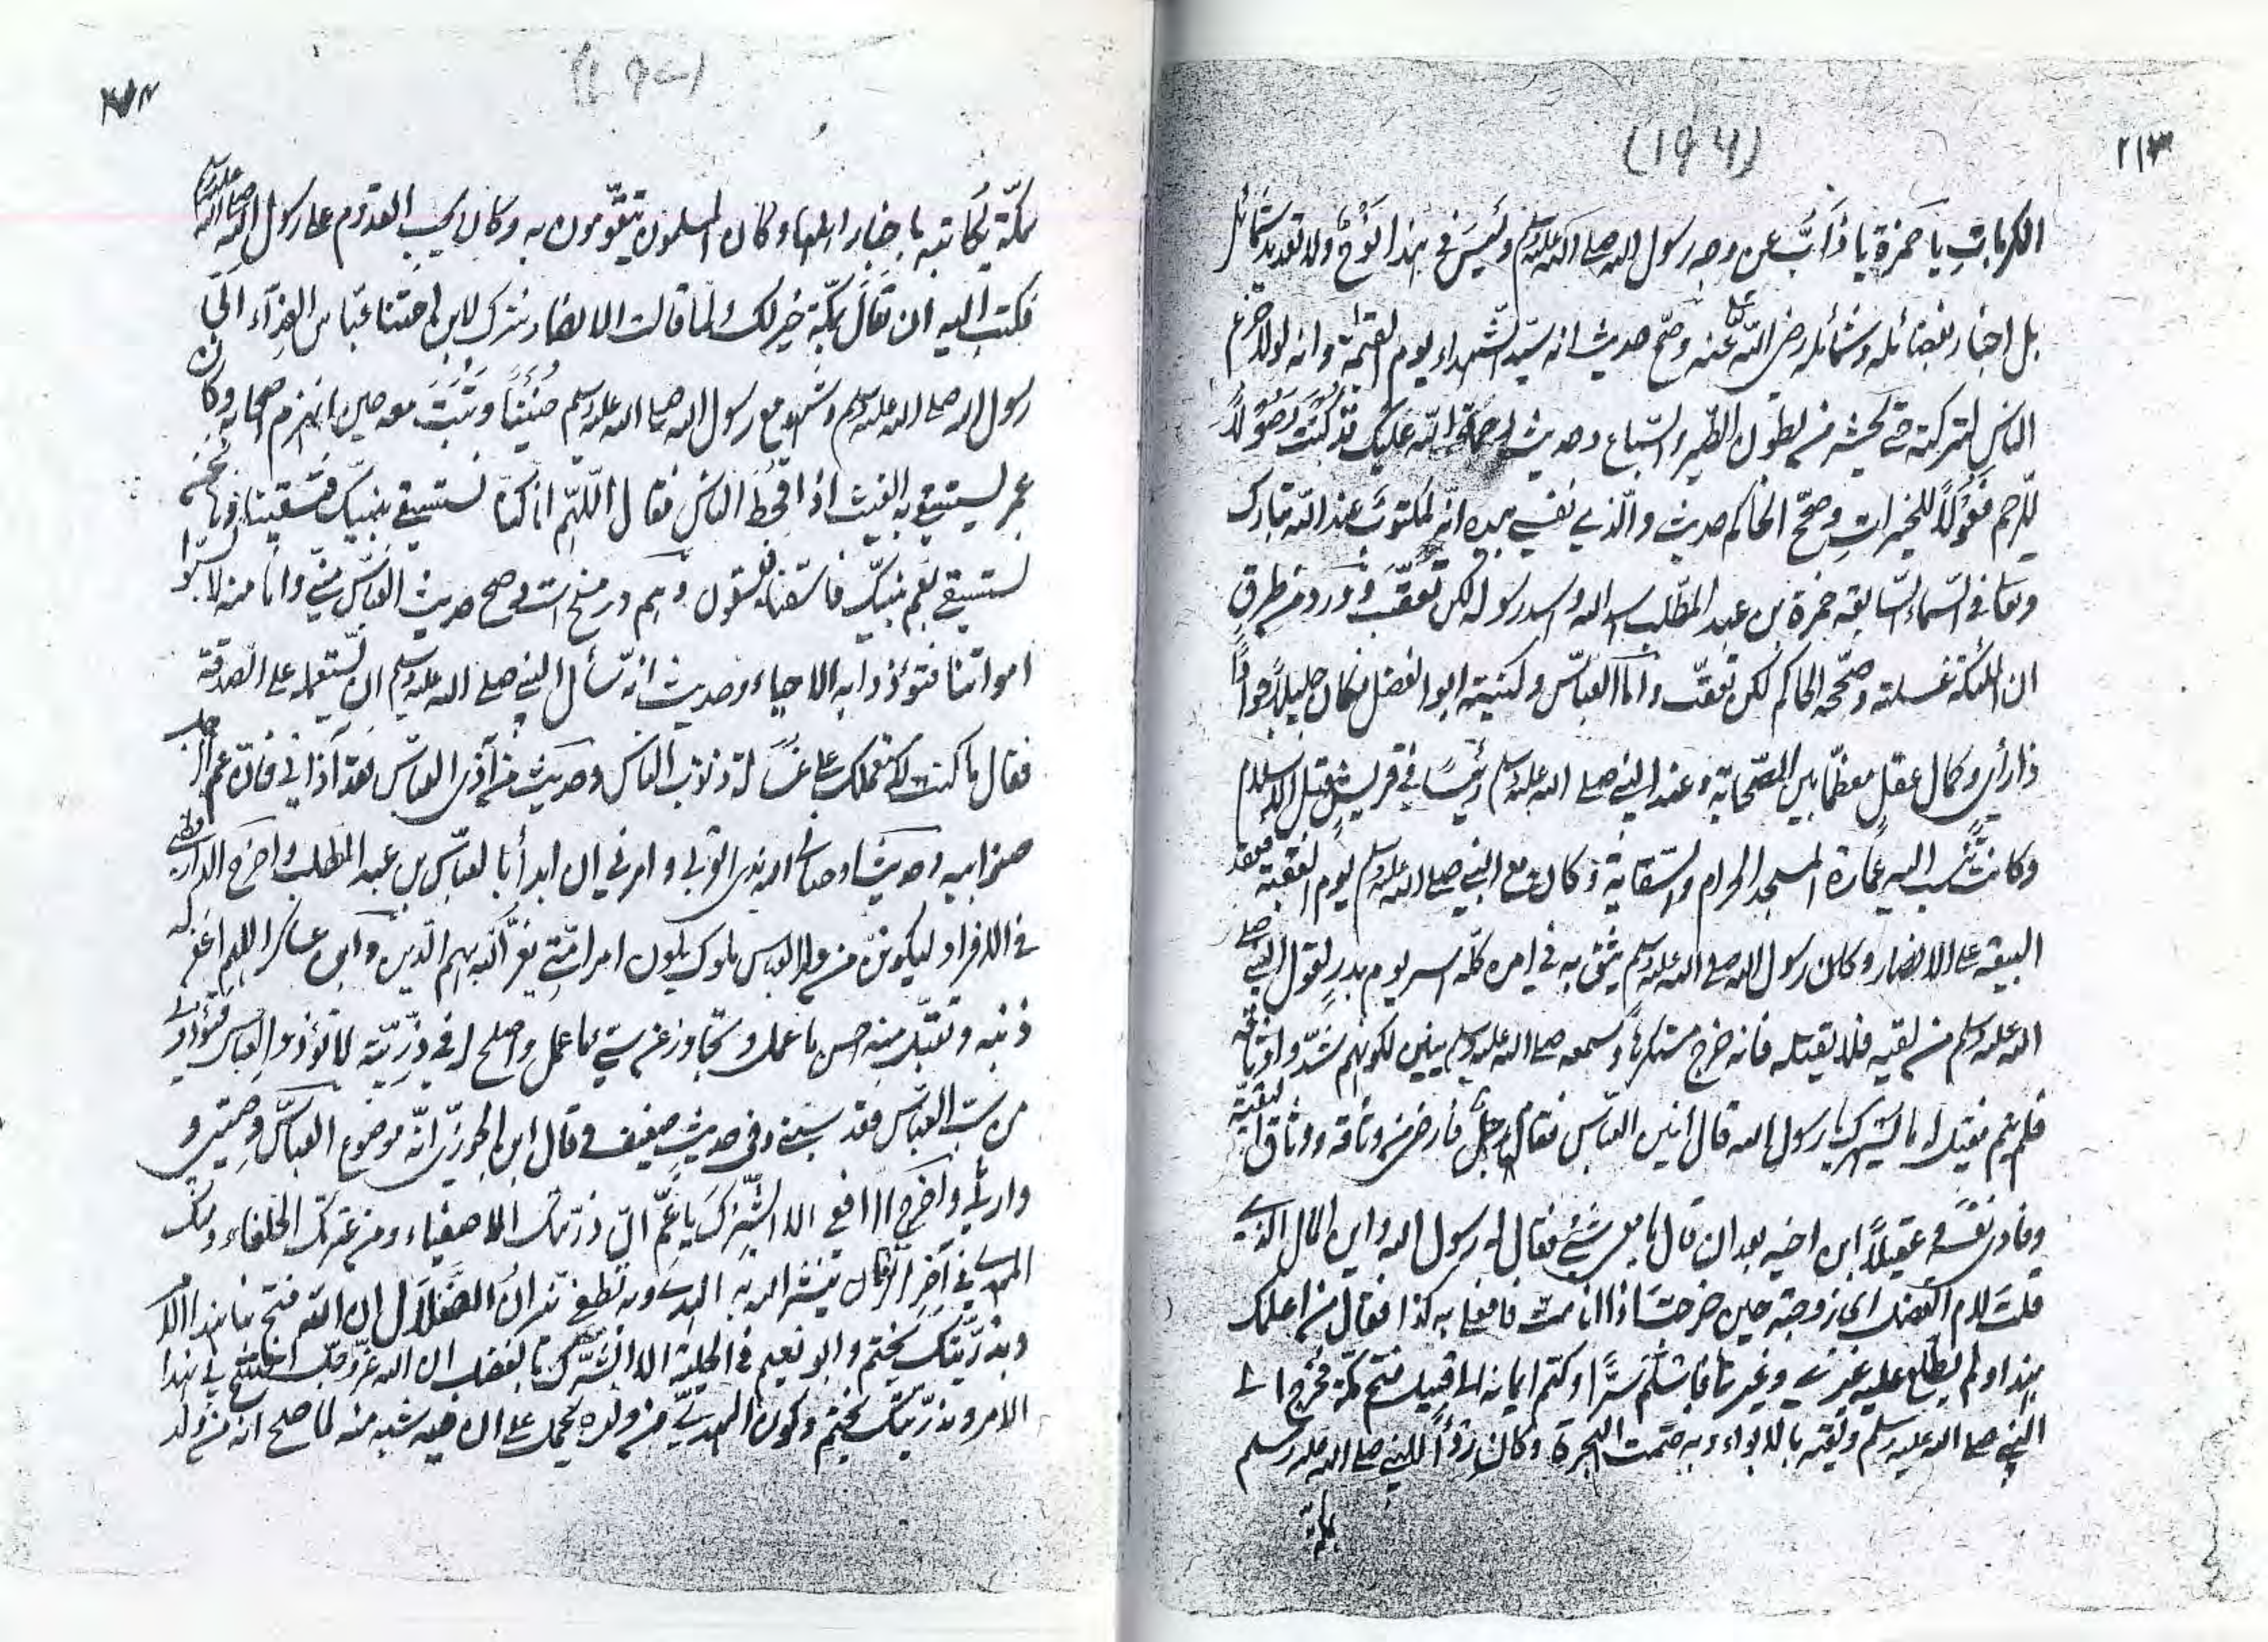 ٢١٣
(١٩٤)
الكربات يا حمزة يا ذابّ عن وجه رسول الله صلى الله عليه وسلم وليس في هذا نوح ولا تعديد شمائل
بل اخبار بفضائله وشمائله رضي الله عنه وصح حديث انه سيد الشهداء يوم القيمة وانه لولا جزع
الناس لتركته حتى يحشر من بطون الطير والسباع وحديث رحمة الله عليك قد كنت وصولاً
للرحم فعولاً للخيرات وصحّح الحاكم حديث والّذي نفسي بيده انه لمكتوب عند الله تبارك
وتعا في السماء السابعة حمزة بن عبد المطلب اسد الله واسد رسوله لكن تعقب وورد من طرق
ان الملئكة غسلته وصححه الحاكم لكن تعقب واما العباس وكنيته ابو الفضل فكان جليلاً جواداً
ذا رأى وكمال عقل معظما بين الصحابة وعند النبي صلى الله عليه وسلم رئيسا في قريش قبل الاسلام
وكانت تنسب اليه عمارة المسجد الحرام والسقاية وكان مع النبي صلى الله عليه وسلم يوم العقبة فعقد
البيعة على الانصار وكان رسول الله صلى الله عليه وسلم يثق به في امره كله اسر يوم بدر لقول النبي صلى
الله عليه وسلم من لقيه فلا يقتله فانه خرج مستكرها وسمعه صلى الله عليه وسلم يئن لكونهم شدوا وثاقه
فلم ينم فقيل له ما يسهرك يا رسول الله قال انين العباس فقام رجل فارخى من وثاقه ووثاق البقية
وفادى نفسه وعقيلاً ابن اخيه بعد ان قال ما معي شيء فقال له رسول الله واين المال الذي
قلت لام الفضل اى زوجته حين خرجت اذا انا مت فافعلي به كذا فقال من اعلمك
بهذا ولم يطلع عليه غيري وغيرها فاسلم سرّا وكتم ايمانه الى قبيل فتح مكة فخرج الى
النبي صلى الله عليه وسلم ولقيه بالابواء وبه ختمت الهجرة وكان رزؤاً للنبي صلى الله عليه وسلم
بمكة
بمكّة يكاتبه باخبار اهلها وكان المسلمون يتقوّون به وكان يحب القدوم على رسول الله صلى الله عليه وسلم
فكتب اليه ان مقامك بمكّة خير لك ولما قالت الانصار نترك لابن اختنا عباس الفداء ابى
رسول الله صلى الله عليه وسلم وشهد مع رسول الله صلى الله عليه وسلم حنيناً وثبت معه حين انهزم اصحابه وكان
عمر يستسقي به الغيث اذا قحط الناس فقال اللهم انا كنا نستسقي بنبيك فتسقينا ونحن
نستسقي بعم نبيك فاسقنا فيسقون وصح حديث العباس مني وانا منه لا تسبوا
امواتنا فتؤذوا به الاحياء وحديث انه سأل النبي صلى الله عليه وسلم ان يستعمله على الصدقة
فقال ما كنت لاستعملك على غسالة ذنوب الناس وحديث من آذى العباس فقد آذاني فان عم الرجل
صنو ابيه وحديث اوصاني الله بذي القربى وامرني ان ابدأ بالعباس بن عبد المطلب واخرج الدارقطني
في الافراد ليكونن من ولد العباس ملوك يلون امر امتي يعز الله بهم الدين وابن عساكر اللهم اغفر له
ذنبه وتقبل منه احسن ما عمل وتجاوز عن سيء ما عمل واصلح له في ذريته لا تؤذوا العباس فتؤذوني
من سب العباس فقد سبني وفى حديث ضعيف وقال ابن الجوزي انه موضوع العباس وصيي و
وارثي واخرج الرافعي الا ابشرك يا عم ان من ذريتك الاصفياء ومن عترتك الخلفاء ومنك
المهدي في آخر الزمان ينشر الله به الهدى وبه تطفى نيران الضلال ان الله فتح بنا هذا الامر
وبذريتك يختم وابو نعيم في الحلية الا ابشرك يا ابا الفضل ان الله عز وجل افتتح بي هذا
الامر وبذريتك يختم وكون المهدي من ولده يحمل على ان فيه شعبة منه لما صح انه من ولد